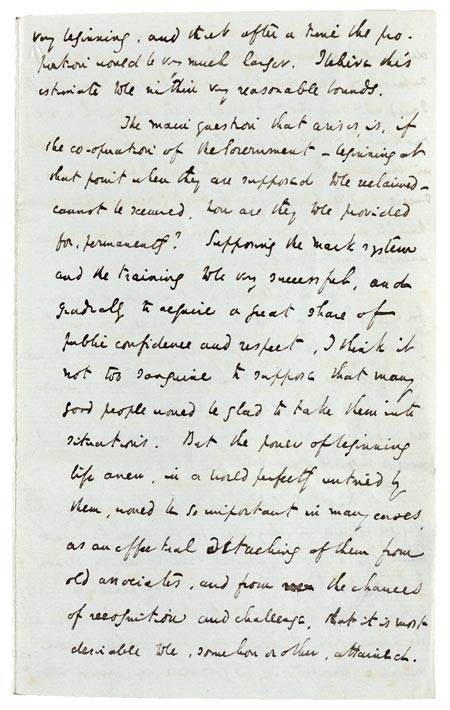 very beginning, and that after a time the pro-
portion would be very much larger. I believe this
estimate to be within very reasonable bounds.
The main question that arises, is, if
the co-operation of the Government – beginning at
that point when they are supposed to be reclaimed –
cannot be secured, how are they to be provided
for, permanently? Supposing the mark system
and the training to be very successful, and
gradually to acquire a great share of
public confidence and respect, I think it
not too sanguine to suppose that many
good people would be glad to take them into
situations. But the power of beginning
life anew, in a world perfectly untried by
them, would be so important in many cases,
as an effectual detaching of them from
old associates, and from the chances
of recognition and challenge, that it is most
desirable to be, somehow or other, attained.